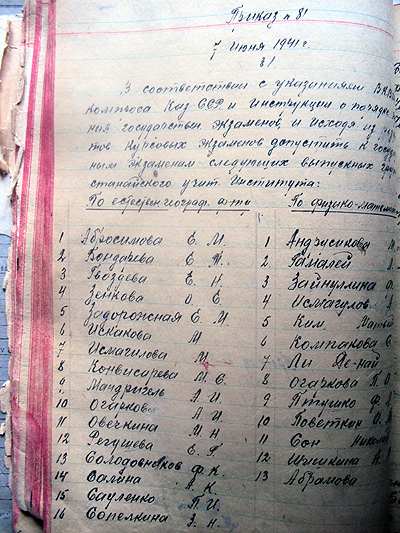 Приказ № 81
7 Июня 1941 г.
§1
В соответствии с указаниями В.К.В.
комтроса Каз ССР и Инструкции о порядке
ния государствен экзаменов и исходя из
тов Курсовых экзаменов допустить к госуда
ным экзаменам следующих выпускных
станайского учит. Института:
По естествен географ. ф-ту
1 Абросимова Е. М.
2 Бондарева Е
3 Гвоздева Е. Н.
4 Зенкова О. Е.
5 Задорожная Е. М.
6 Искакова М
7 Исмагилова М.
8 Конвисарева М. С.
9 Мандригель А. И.
10 Огарков А. И.
11 Овечкина М. Н
12 Регушева Е. Г
13 Солодовников Ф. К
14 Салина А. К.
15 Сауленко П. И.
16 Сопелкина З. Н.
По физико-математ
1 Андрусикова
2 Гамалей
3 Зайнуллин
4 Исмагулов
5 Ким
6 Компакова
7 Ли Де-най
8 Огаркова П. И.
9 Птушко Ф.
10 Поветкин
11 Сон Николай
12 Шишкина А.
13 Абрамова